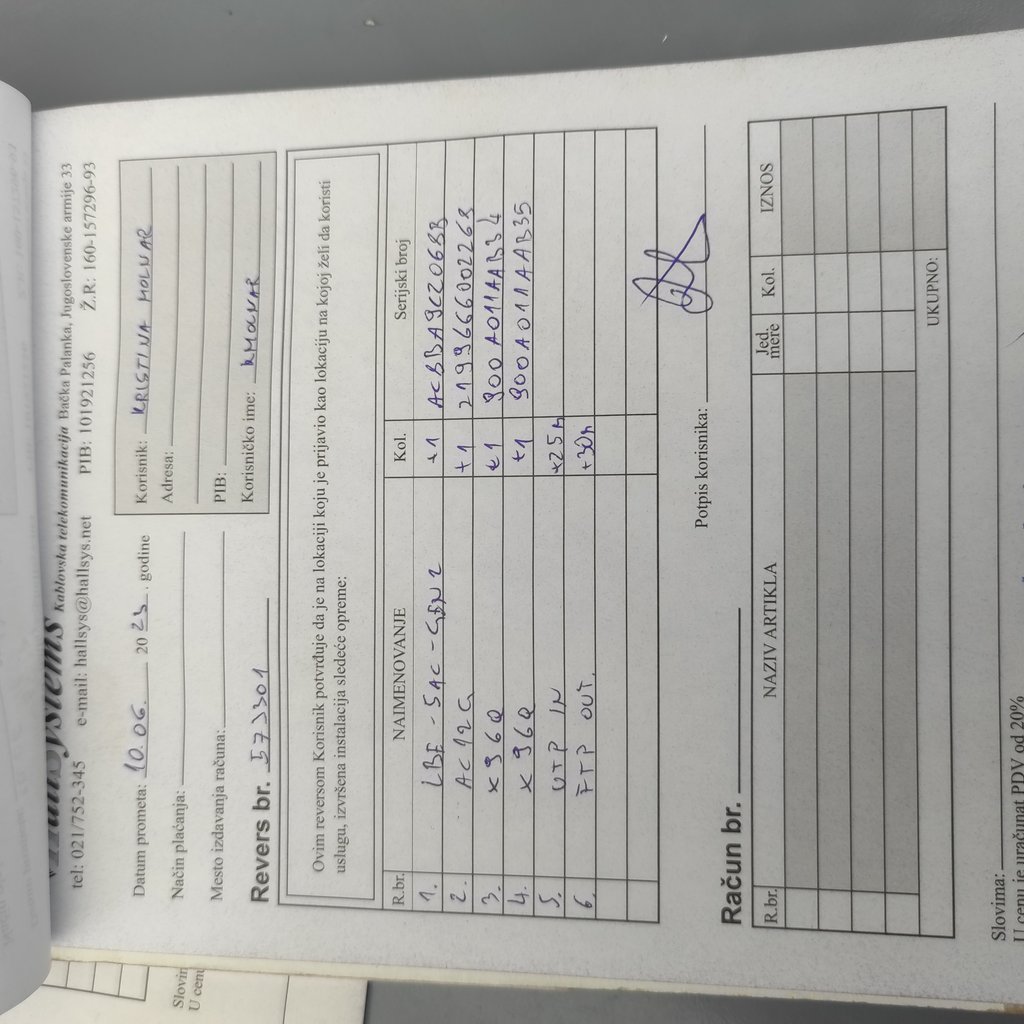 Kablovska telekomunikacija Bačka Palanka, Jugoslovenske armije 33
tel: 021/752-345 e-mail: hallsys@hallsys.net PIB: 101921256 Ž.R: 160-157296-93
Datum prometa: 10.06. 2023. godine
Način plaćanja:
Mesto izdavanja računa:
Korisnik: KRISTINA MOLNAR
Adresa:
PIB:
Korisničko ime: KMOLNAR
Revers br. 573301
Ovim reversom Korisnik potvrđuje da je na lokaciji koju je prijavio kao lokaciju na kojoj želi da koristi
uslugu, izvršena instalacija sledeće opreme:
R.br. NAIMENOVANJE Kol. Serijski broj
1. LBE-5AC-GEN2 +1 ACBBA9C2068B
2. AC12G +1 2199666002268
3. X96Q +1 900A011AAB34
4. X96Q +1 900A011AAB35
5. UTP IN +25m
6. FTP OUT. +30m
Potpis korisnika:
Račun br.
R.br. NAZIV ARTIKLA Jed. mere Kol. IZNOS
UKUPNO:
Slovima:
U cenu je uračunat PDV od 20%
Slovim
U cenu